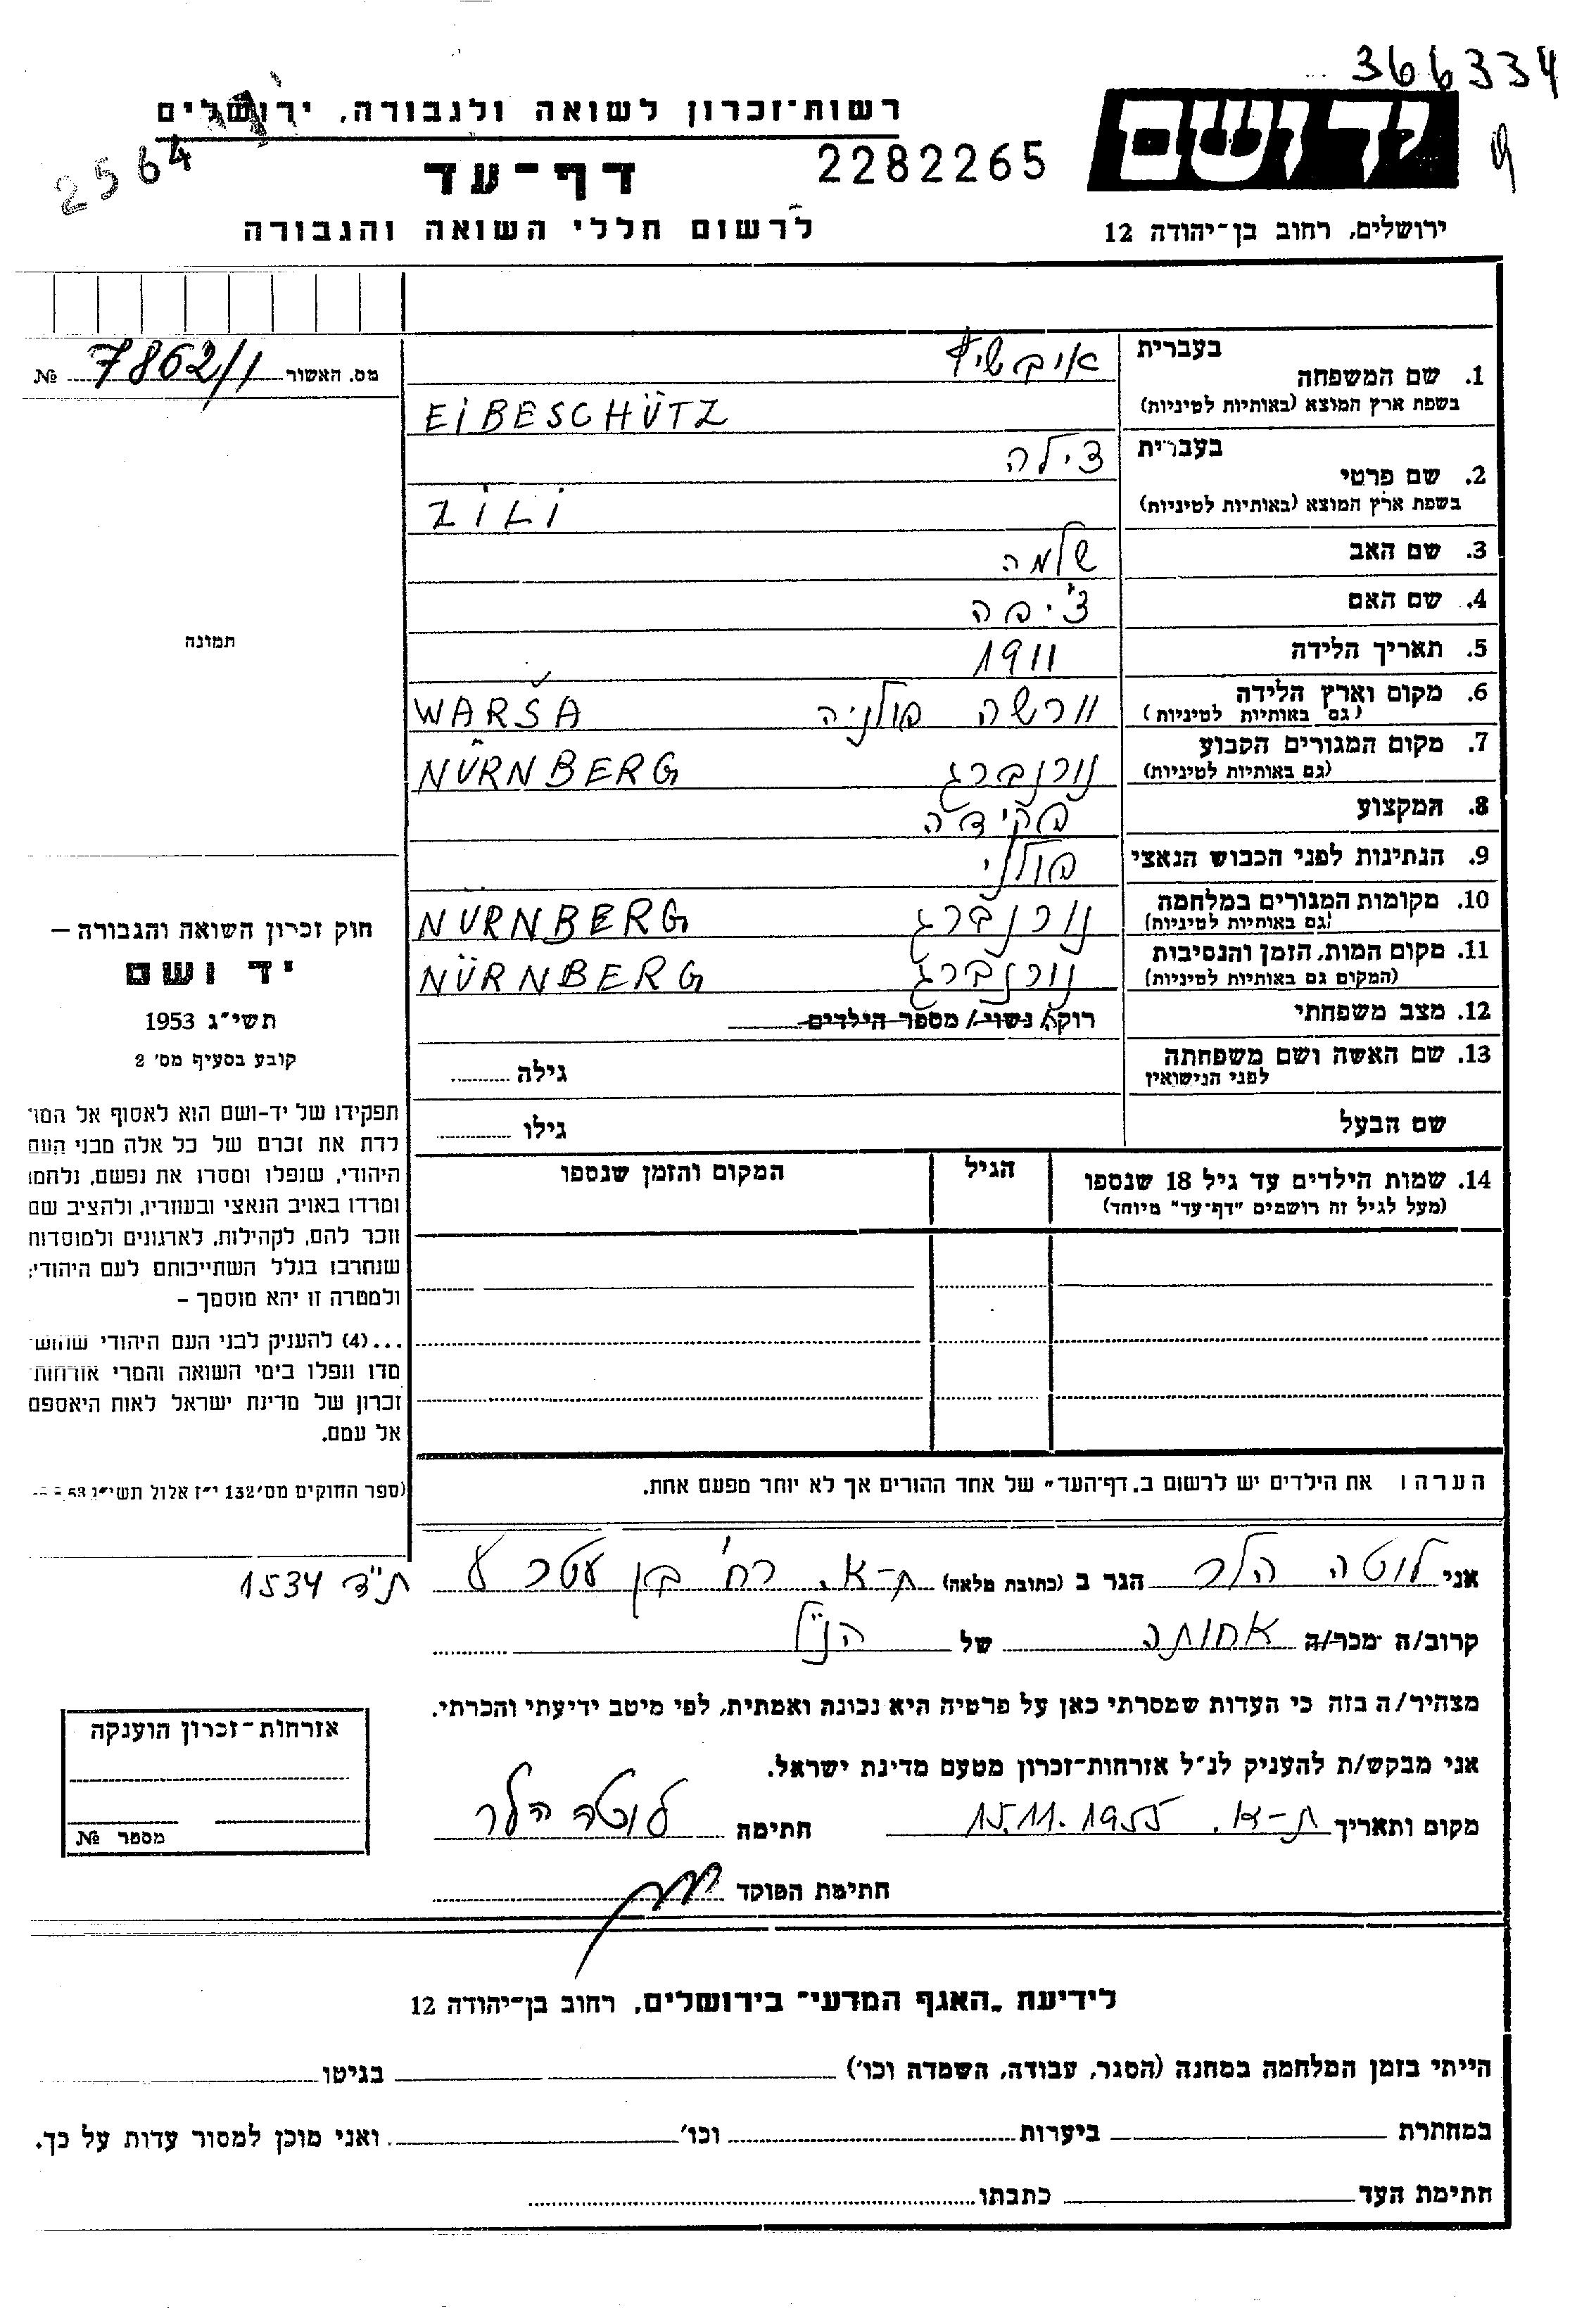 366334
רשות-זכרון לשואה ולגבורה, ירושלים
יד ושם
2564
דף-עד
2282265
לרשום חללי השואה והגבורה
ירושלים, רחוב בן-יהודה 12
מס. האשור 7862/1 №
1. שם המשפחה
בעברית
איבשיץ
בשפת ארץ המוצא (באותיות לטיניות)
EIBESCHÜTZ
2. שם פרטי
בעברית
צילה
בשפת ארץ המוצא (באותיות לטיניות)
ZILI
3. שם האב שלמה
4. שם האם ציפה
5. תאריך הלידה 1911
6. מקום וארץ הלידה וורשה פולניה WARŠA
(גם באותיות לטיניות)
7. מקום המגורים הקבוע נורנברג NÜRNBERG
(גם באותיות לטיניות)
8. המקצוע פקידה
9. הנתינות לפני הכבוש הנאצי פולני
10. מקומות המגורים במלחמה נורנברג NURNBERG
(גם באותיות לטיניות)
11. מקום המות, הזמן והנסיבות נורנברג NÜRNBERG
(המקום גם באותיות לטיניות)
12. מצב משפחתי רוקה/ נשוי/ מספר הילדים
13. שם האשה ושם משפחתה
לפני הנישואין
גילה
שם הבעל גילו
14. שמות הילדים עד גיל 18 שנספו הגיל המקום והזמן שנספו
(מעל לגיל זה רושמים "דף-עד" מיוחד)
תמונה
חוק זכרון השואה והגבורה –
יד ושם
תשי"ג 1953
קובע בסעיף מס' 2
תפקידו של יד-ושם הוא לאסוף אל המו־
לדת את זכרם של כל אלה מבני העם
היהודי, שנפלו ומסרו את נפשם, נלחמו
ומרדו באויב הנאצי ובעוזריו, ולהציב שם
וזכר להם, לקהילות, לארגונים ולמוסדות
שנחרבו בגלל השתייכותם לעם היהודי;
ולמטרה זו יהא מוסמך –
...(4) להעניק לבני העם היהודי שהוש־
מדו ונפלו בימי השואה והמרי אזרחות־
זכרון של מדינת ישראל לאות היאספם
אל עמם.
(ספר החוקים מס' 132 י"ז אלול תשי"ג
הערה: את הילדים יש לרשום ב„דף-העד" של אחד ההורים אך לא יותר מפעם אחת.
אני לוטה הלר הגר ב (כתובת מלאה) ת-א. רח' בן עטר ת"ד 1534
קרוב/ה מכר/ה אחותה של הנ"ל
מצהיר/ה בזה כי העדות שמסרתי כאן על פרטיה היא נכונה ואמתית, לפי מיטב ידיעתי והכרתי.
אני מבקש/ת להעניק לנ"ל אזרחות-זכרון מטעם מדינת ישראל.
מקום ותאריך ת-א. 15.11.1955 חתימה לוטה הלר
חתימת הפוקד
אזרחות-זכרון הוענקה
מספר №
לידיעת „האגף המדעי" בירושלים, רחוב בן-יהודה 12
הייתי בזמן המלחמה במחנה (הסגר, עבודה, השמדה וכו') בגיטו
במחתרת ביערות וכו' ואני מוכן למסור עדות על כך.
חתימת העד כתבתו